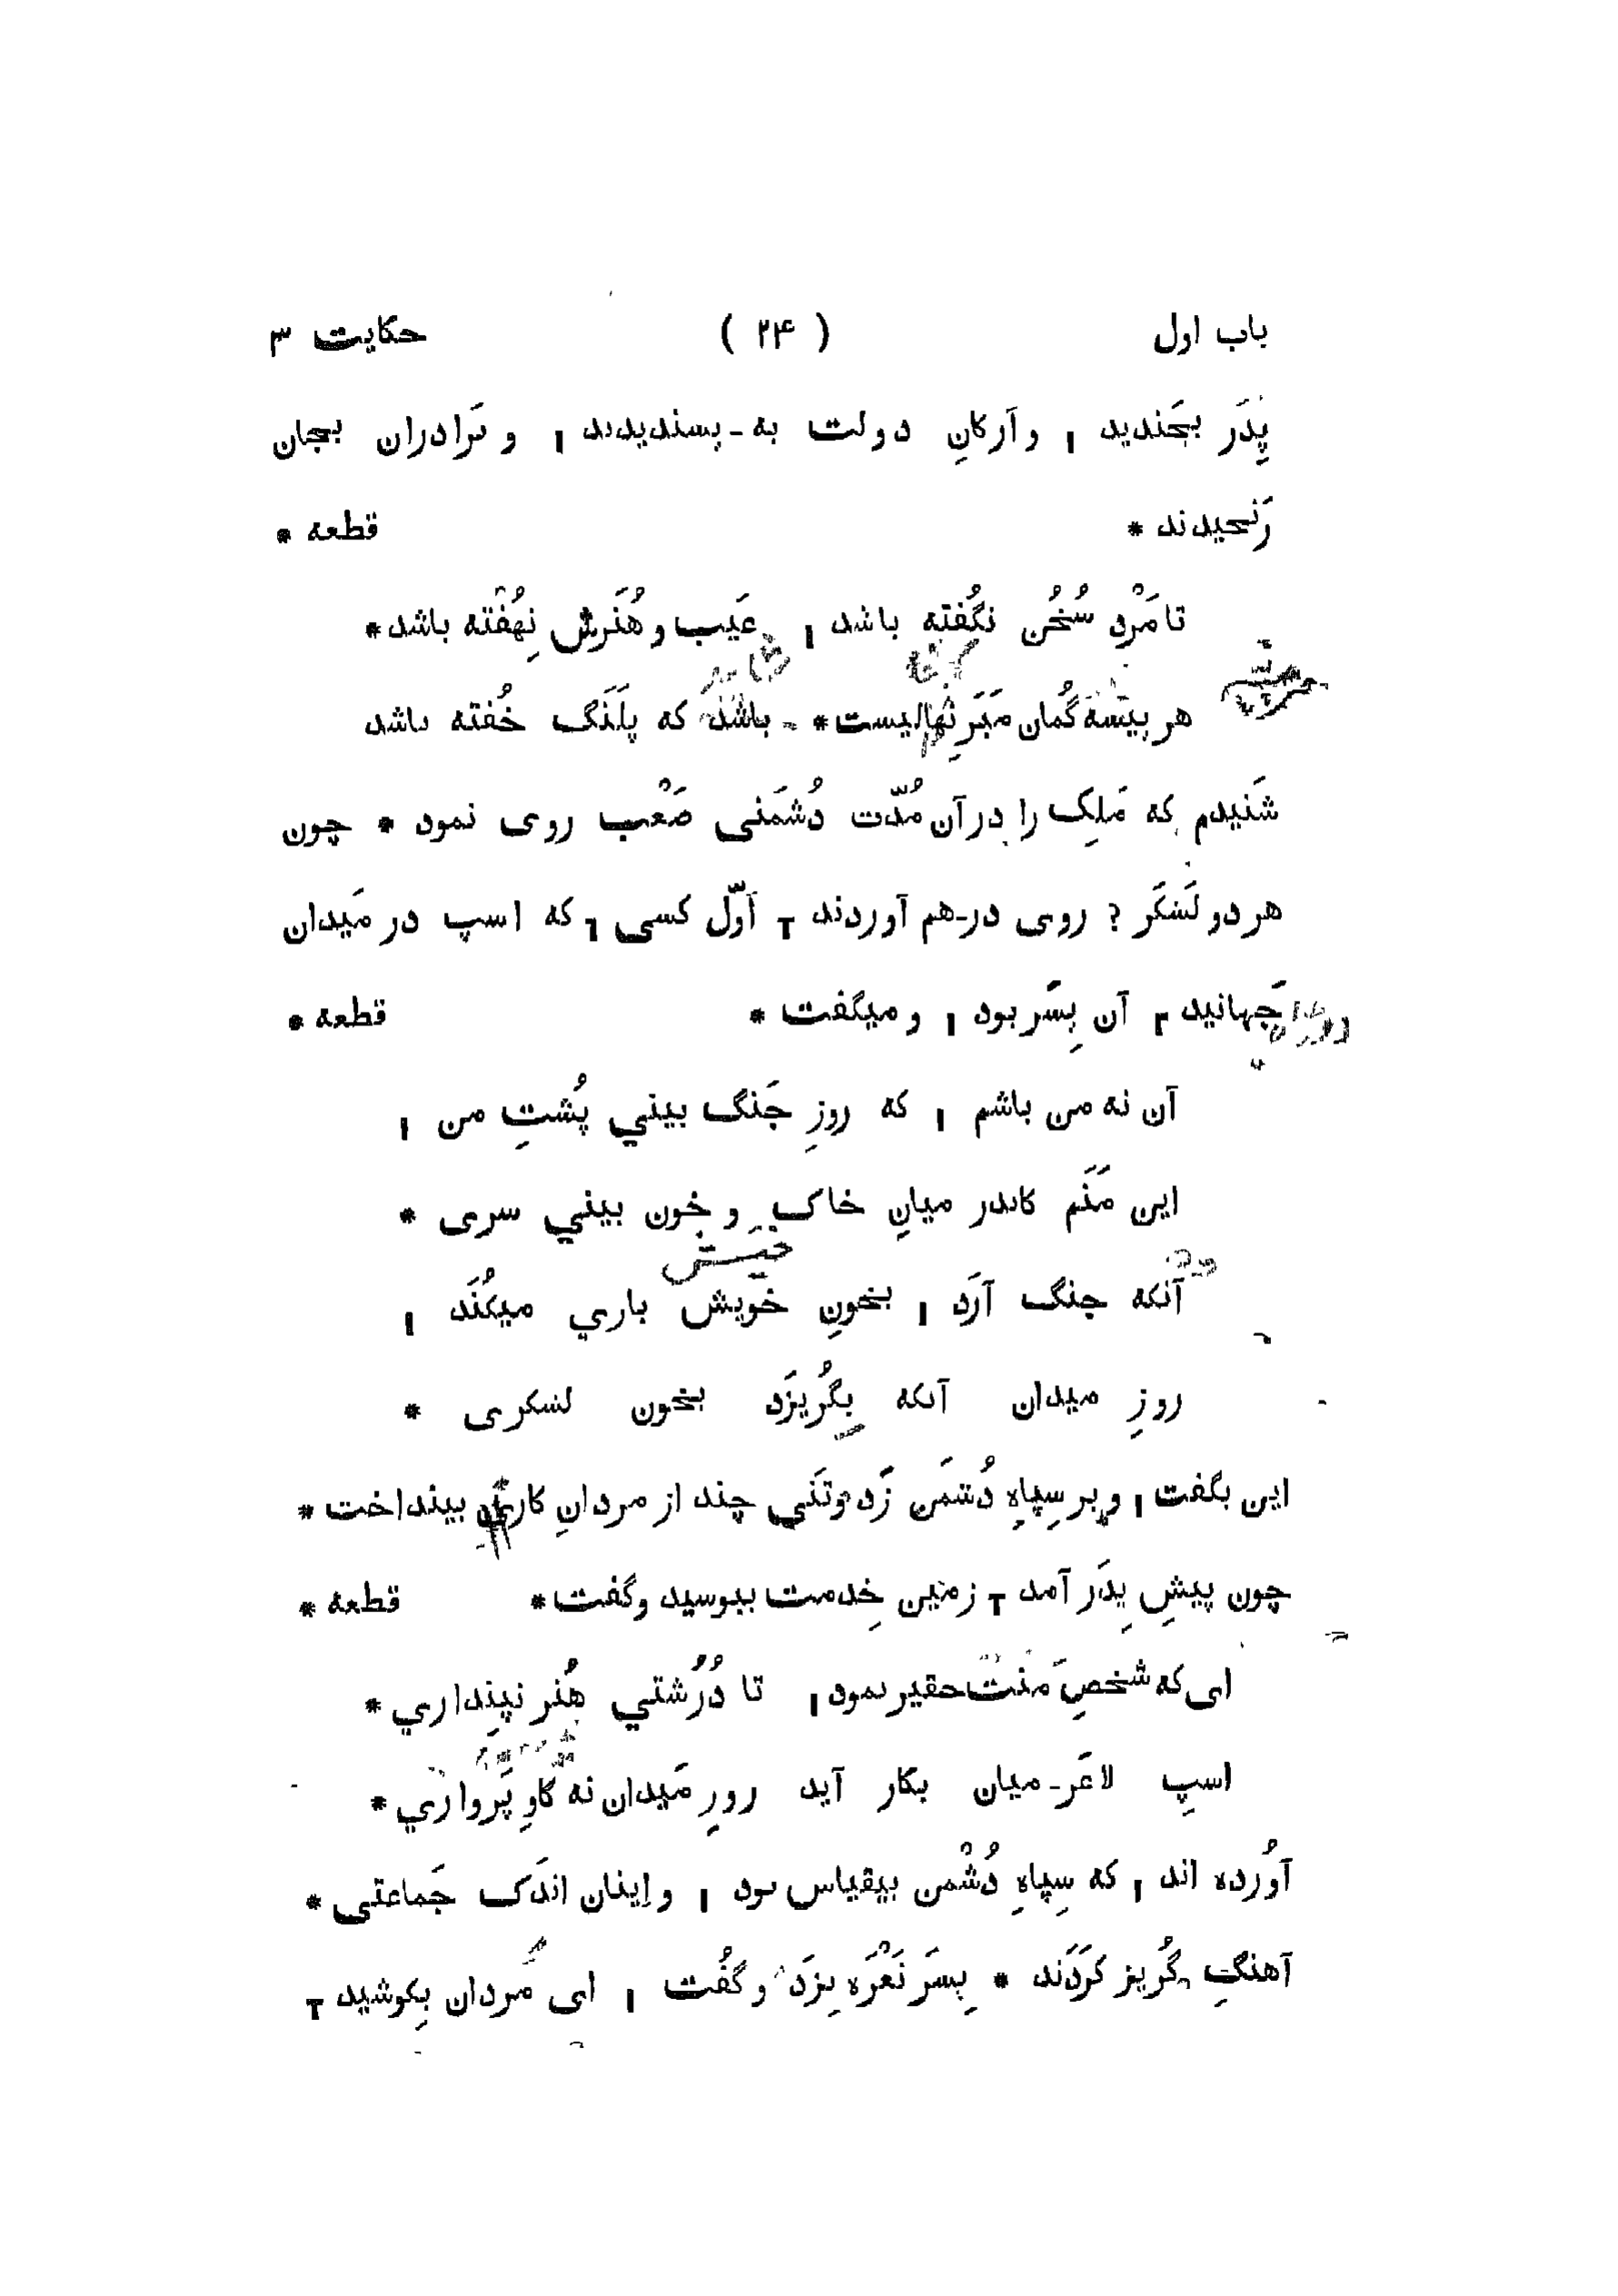 باب اول ( ۲۴ ) حکایت ۳
پِدَر بخَندید ا و اَرکانِ دولت به-پسندیدند ا و بَرادران بجان
رَنجیدند * قطعه *
تا مَرْد سُخُن نگُفته باشد ا عَیب و هُنَرش نِهُفْته باشد *
هر بیشه گُمان مَبَر نِهالیست * - باشد که پَلَنگ خُفته باشد
شَنیدم که مَلِک را در آن مُدّت دُشمَنی صَعْب روی نمود * چون
هر دو لَشکَر ? روی در-هم آوردند T اَوّل کسی ٦ که اسپ در مَیدان
جَهانید ٢ آن پِسَر بود ا و میگفت * قطعه *
آن نه من باشم ا که روزِ جَنگ بیني پُشتِ من ا
این مَنَم کاندر میانِ خاک و خون بیني سری *
آنکه جنگ آرَد ا بخونِ خَویش باري میکُنَد ا
روزِ میدان آنکه بِگُریزَد بخون لشکری *
این بگفت ا و بر سِپاهِ دُشمَن زَد و تَنی چند از مردانِ کاری بینداخت *
چون پیشِ پِدَر آمد T زمین خِدمت ببوسید و گفت * قطعه *
ای که شخصِ مَنَت حقیر نمود ا تا دُرُشتي هُنَر نپِنداري *
اسپِ لاغَر-میان بکار آید روزِ مَیدان نه گاوِ پَرواري *
آوُرده اند ا که سِپاهِ دُشْمن بیقیاس بود ا و اِینان اندَک جَماعتی *
آهنگِ گُریز کَرَدَند * پِسَر نَعْرَه بِزَد و گفُت ا ای مَردان بِکوشید T